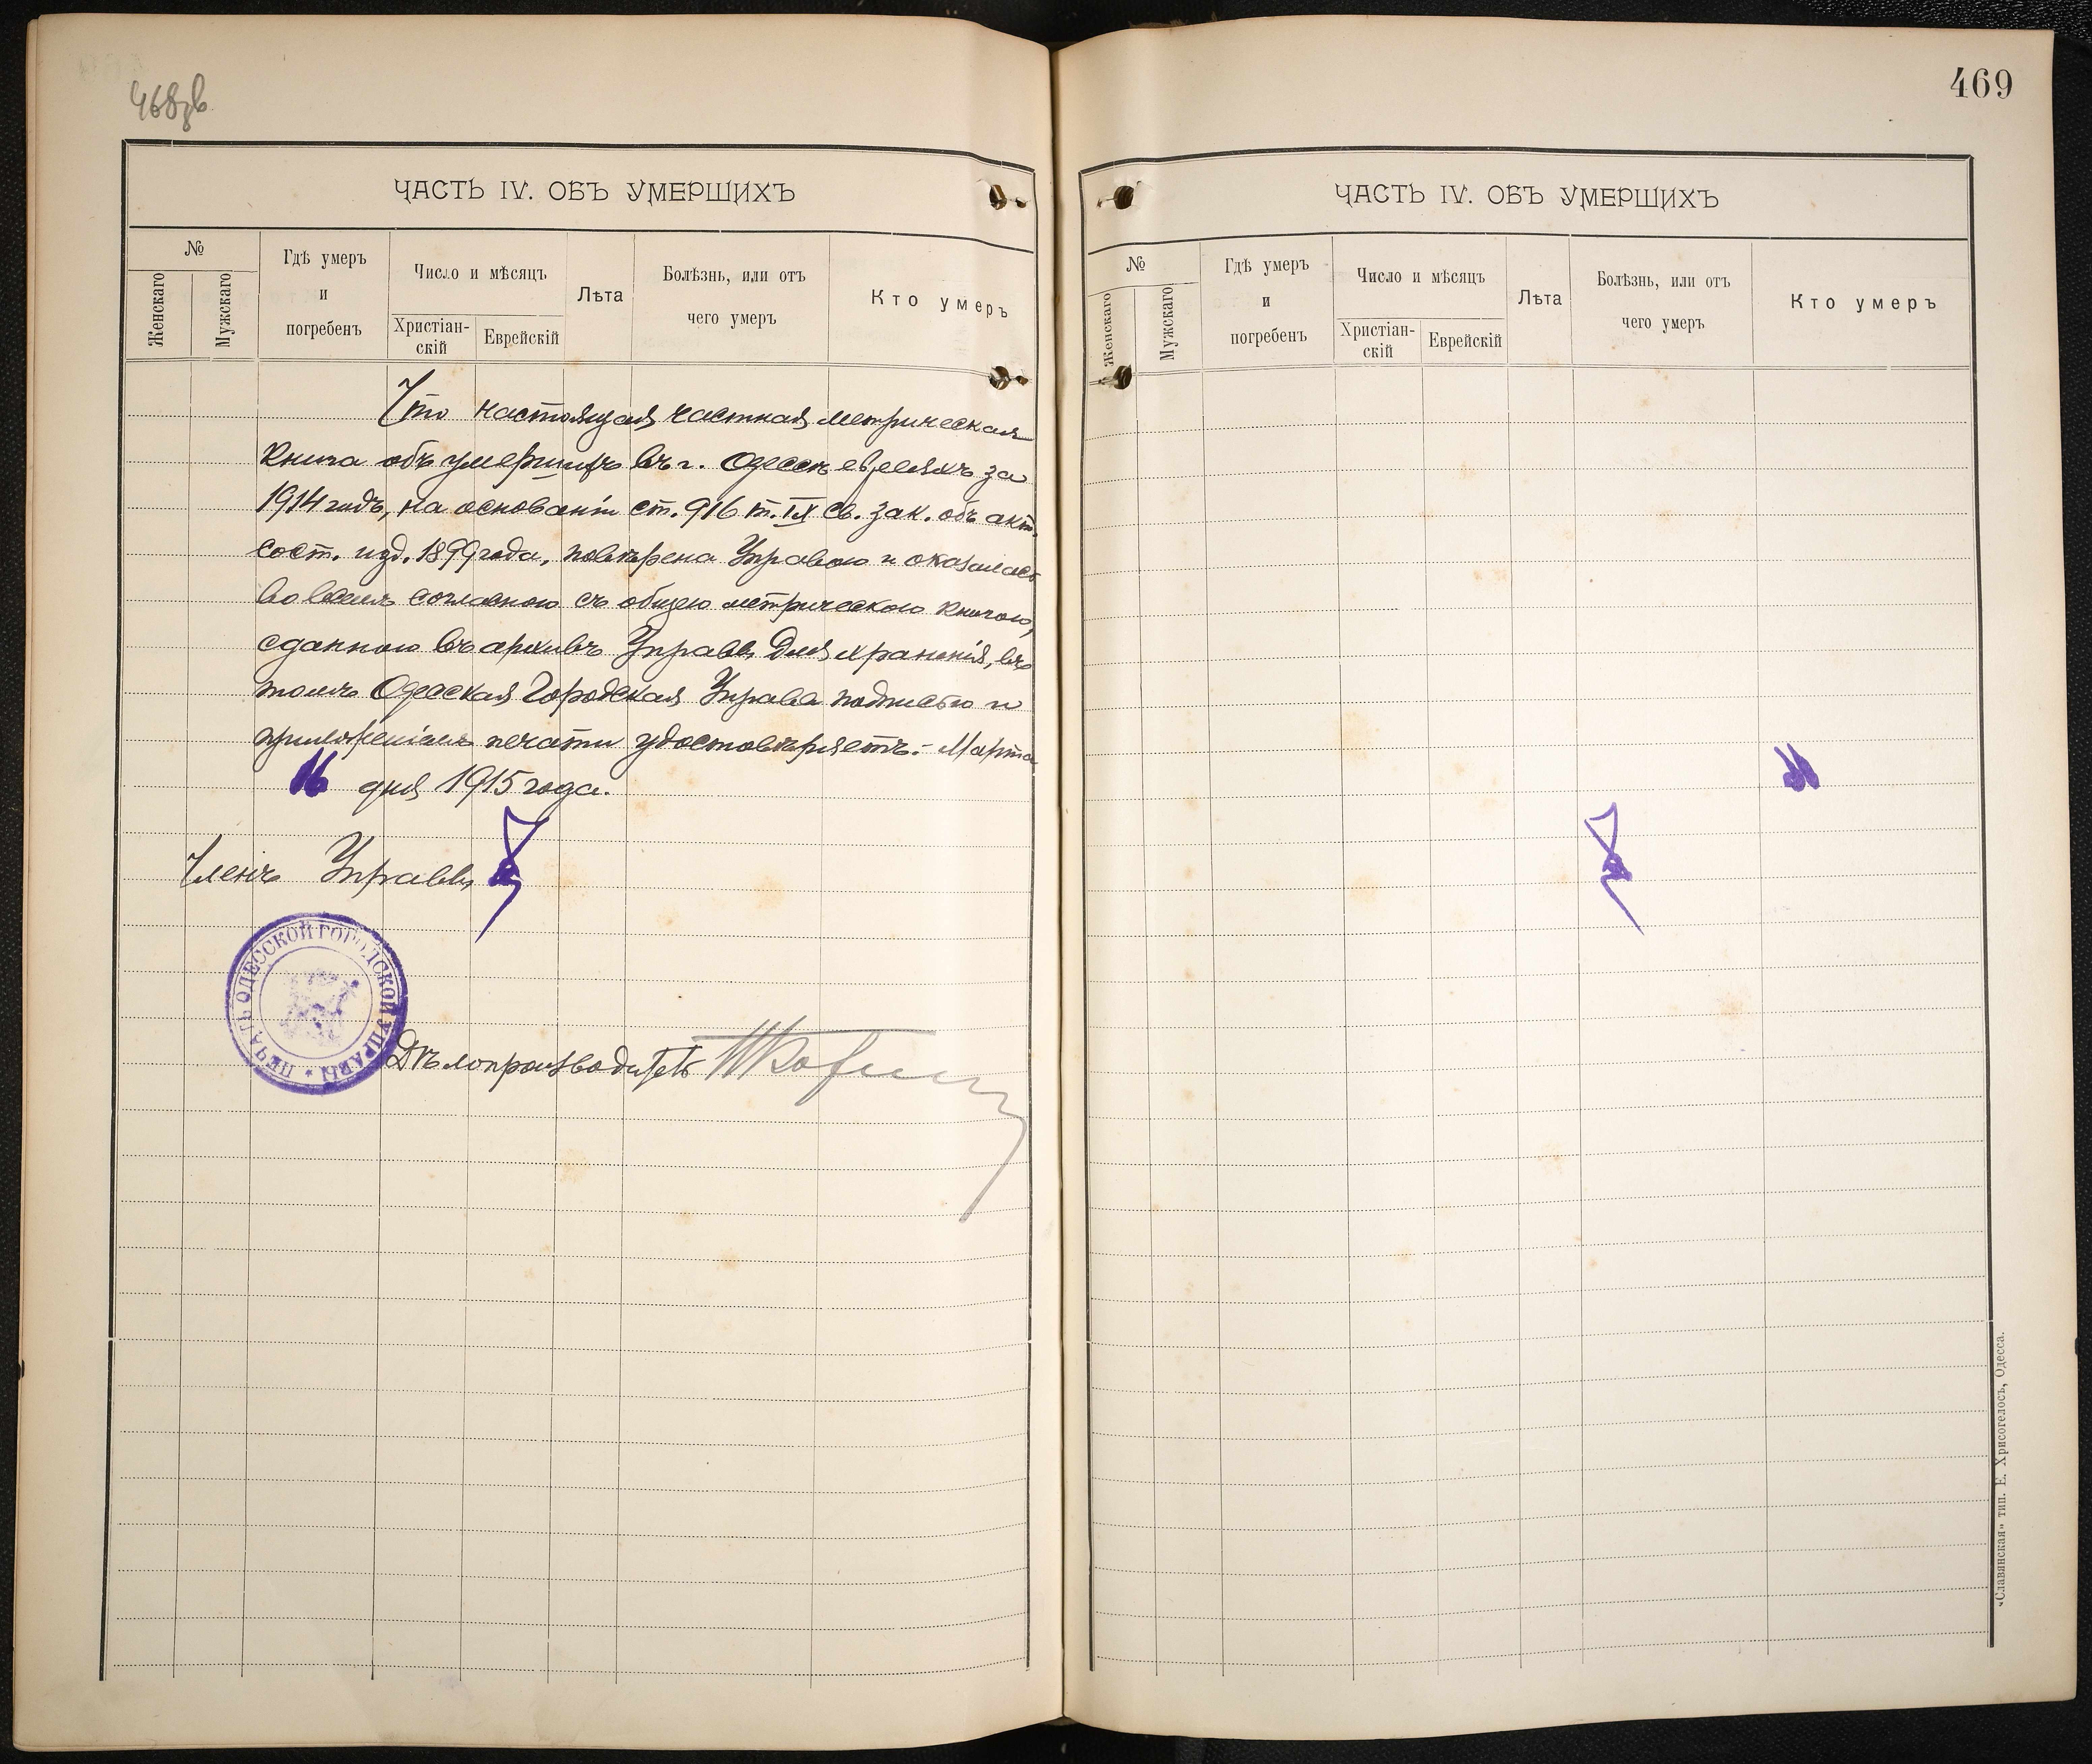 468зв
ЧАСТЬ IV. ОБЪ УМЕРШИХЪ
№
Женскаго
Мужскаго
Гдѣ умеръ
и
погребенъ
Число и мѣсяцъ
Христіан-
скій
Еврейскій
Лѣта
Болѣзнь, или отъ
чего умеръ
Кто умеръ
Что настоящая частная метрическая
книга объ умершихъ въ г. Одессѣ евреяхъ за
1914 годъ, на основаніи ст. 916 т. IX Св. зак. объ акт.
сост. изд. 1899 года, повѣрена Управою и оказалась
во всемъ согласною съ общею метрическою книгою,
сданною въ архивъ Управы для храненія, въ
томъ Одесская Городская Управа подписью и
приложеніемъ печати удостовѣряетъ.- Марта
16 дня 1915 года.
Членъ Управы
ПЕЧАТЬ ОДЕССКОЙ ГОРОДСКОЙ УПРАВЫ
Дѣлопроизводитель
469
ЧАСТЬ IV. ОБЪ УМЕРШИХЪ
№
Женскаго
Мужскаго
Гдѣ умеръ
и
погребенъ
Число и мѣсяцъ
Христіан-
скій
Еврейскій
Лѣта
Болѣзнь, или отъ
чего умеръ
Кто умеръ
«Славянская» тип. Е. Хрисогелосъ, Одесса.